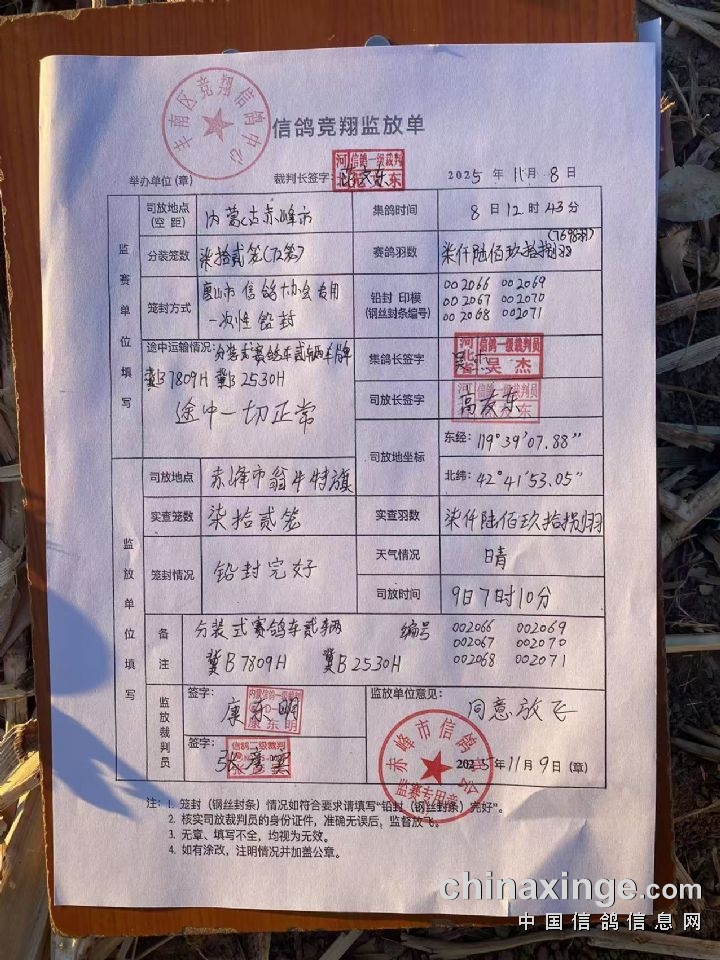 丰南区竞翔信鸽中心
信鸽竞翔监放单
举办单位(章)
裁判长签字:
河 信鸽一级裁判
2025 年 11月 8 日
监赛单位填写
司放地点
(空 距)
内蒙古赤峰市
集鸽时间
8 日 12 时 43 分
分装笼数
柒拾贰笼(72笼)
赛鸽羽数
柒仟陆佰玖拾捌羽
(7698羽)
笼封方式
唐山市信鸽协会专用
一次性铅封
铅封 印模
(钢丝封条编号)
002066 002069
002067 002070
002068 002071
途中运输情况:分装式赛鸽车贰辆车牌
冀B7809H 冀B2530H
途中一切正常
集鸽长签字
河北省 信鸽一级裁判员
吴杰
司放长签字
高友东
司放地坐标
东经: 119°39'07.88"
北纬: 42°41'53.05"
监放单位填写
司放地点
赤峰市翁牛特旗
实查笼数
柒拾贰笼
实查羽数
柒仟陆佰玖拾捌羽
笼封情况
铅封完好
天气情况
晴
司放时间
9日7时10分
备注
分装式赛鸽车贰辆 编号
002066 002069
002067 002070
002068 002071
冀B7809H 冀B2530H
监放裁判员
签字:
康东明
内蒙信鸽一级裁判
康东明
签字:
信鸽二级裁判
监放单位意见:
同意放飞
赤峰市信鸽协会
监赛专用章
2025年11月9日(章)
注: 1. 笼封(钢丝封条)情况如符合要求请填写“铅封(钢丝封条)完好”。
2. 核实司放裁判员的身份证件,准确无误后,监督放飞。
3. 无章、填写不全,均视为无效。
4. 如有涂改,注明情况并加盖公章。
chinaxinge.com
中国信鸽信息网